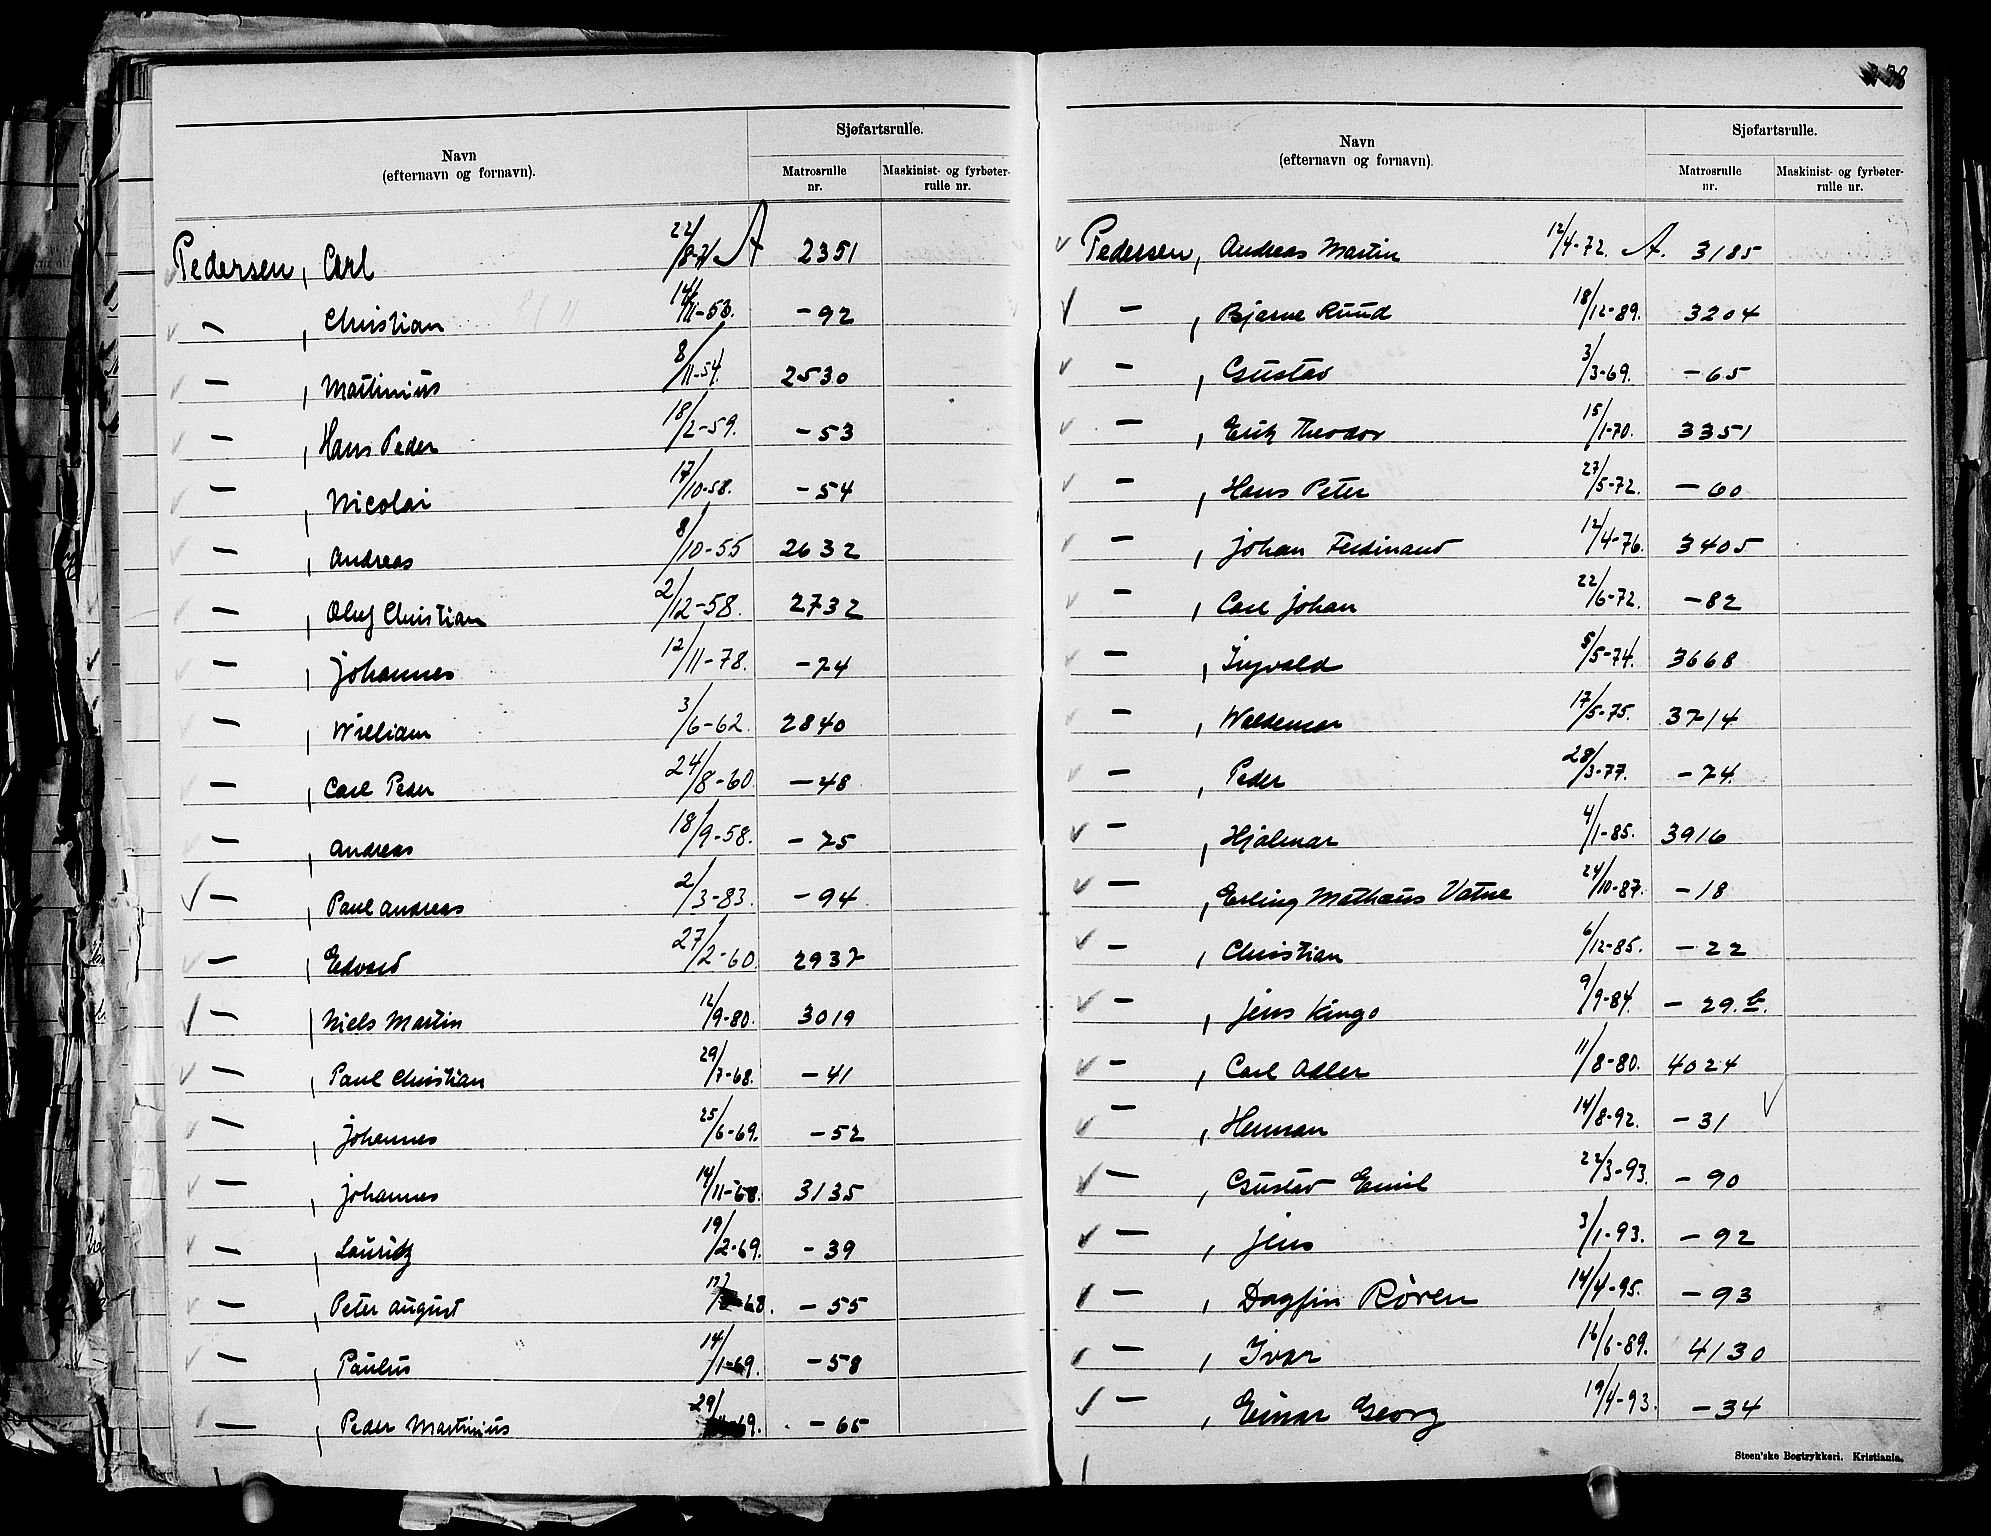 Navn
(efternavn og fornavn).
Sjøfartsrulle.
Matrosrulle nr.
Maskinist- og fyrbøter-rulle nr.
Pedersen, Carl 22/8-71 A 2351
— , Christian 14/11-53. -92
— , Martinius 8/11-54. 2530
— , Hans Peder 18/2-59. -53
— , Nicolai 17/10-58. -54
— , Andreas 8/10-55 2632
— , Oluf Christian 2/12-58. 2732
— , Johannes 12/11-78. -74
— , William 3/6-62. 2840
— , Carl Peder 24/8-60 -48
— , Andreas 18/9-58. -75
— , Paul Andreas 2/3-83. -94
— , Edvard 27/2-60. 2937
— , Niels Martin 12/9-80. 3019
— , Paul Christian 29/7-68. -41
— , Johannes 25/6-69. -52
— , Johannes 14/11-68. 3135
— , Lauritz 19/2-69. -39
— , Peter August -68. -55
— , Paulus 14/1-69. -58
— , Peder Martinius 29/ -69. -65
Navn
(efternavn og fornavn).
Sjøfartsrulle.
Matrosrulle nr.
Maskinist- og fyrbøter-rulle nr.
Pedersen, Andreas Martin 12/4-72. A. 3185
— , Bjarne Ruud 18/12-89. 3204
— , Gustav 3/3-69. -65
— , Erik Theodor 15/1-70. 3351
— , Hans Peter 27/5-72. -60
— , Johan Ferdinand 12/4-76. 3405
— , Carl Johan 22/6-72. -82
— , Ingvald 5/5-74. 3668
— , Waldemar 17/5-75. 3714
— , Peder 28/3-77. -74.
— , Hjalmar 4/1-85. 3916
— , Erling Mathæus Vatne 24/10-87. -18
— , Christian 6/12-85. -22
— , Jens Kingo 9/9-84. -29.b.
— , Carl Adler 11/8-80. 4024
— , Herman 14/8-92. -31
— , Gustav Emil 22/3-93. -90
— , Jens 3/1-93. -92
— , Dagfin Røren 14/4-95. -93
— , Ivar 16/6-89. 4130
— , Einar Georg 19/4-93. -34
Steen'ske Bogtrykkeri. Kristiania.